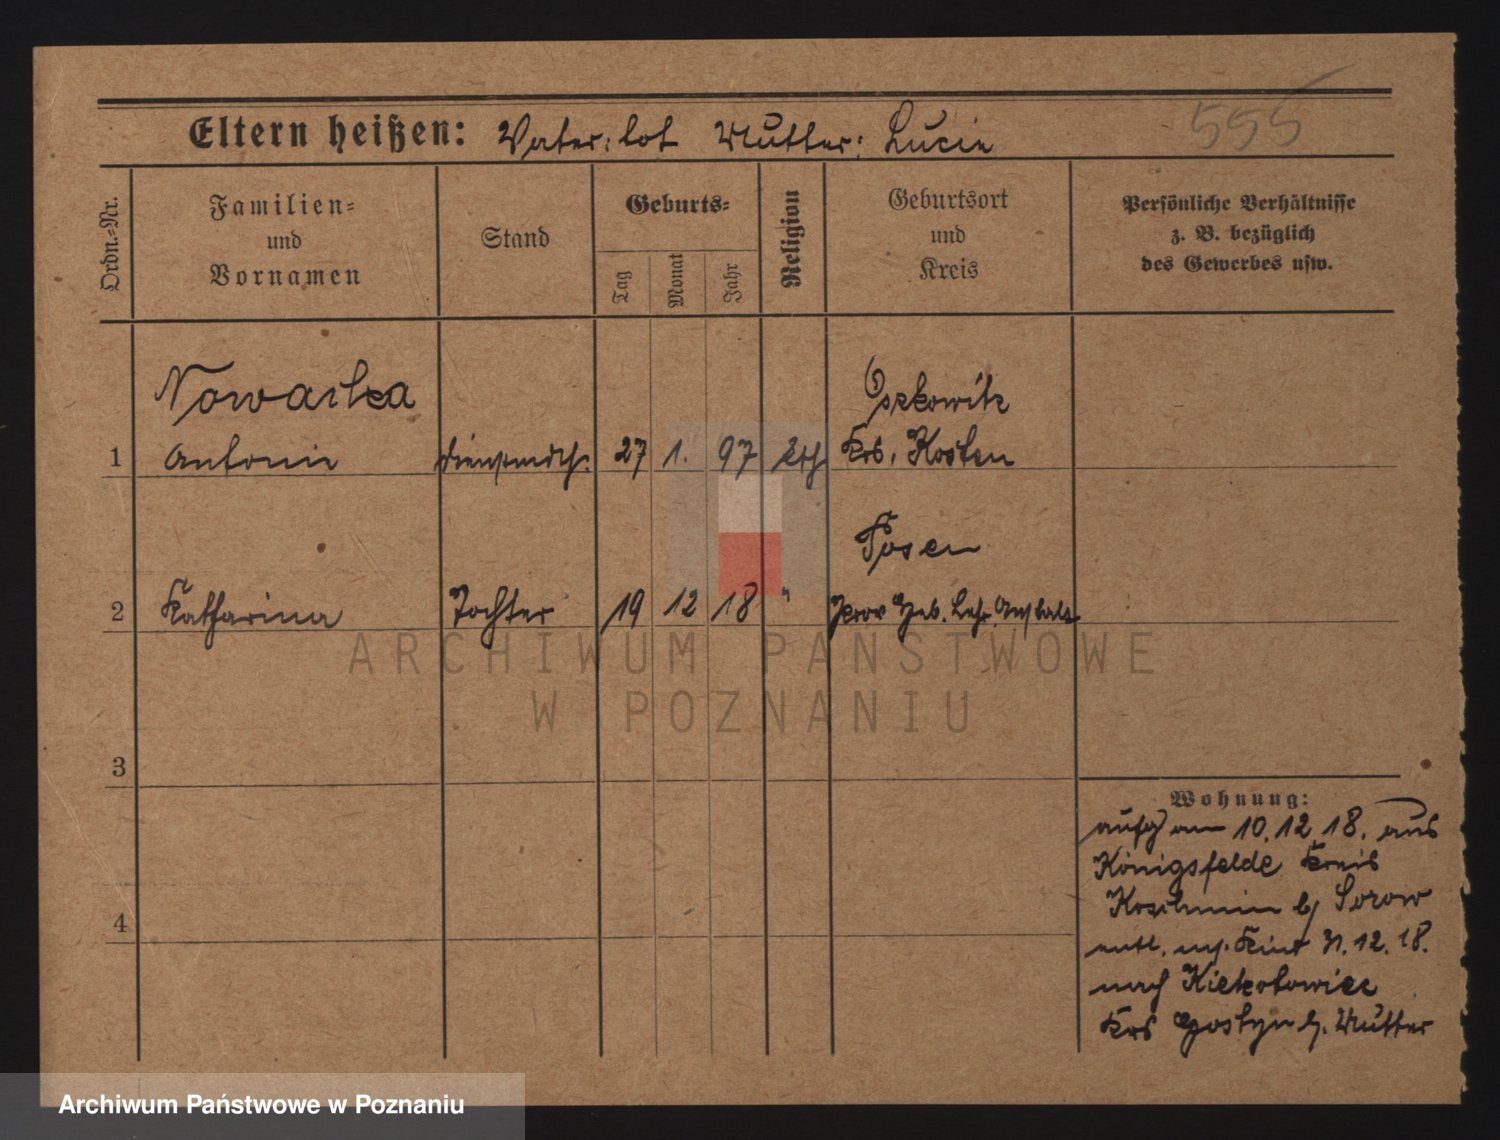 Eltern heißen: Vater: tot Mutter: Lucie
555
Ordn.-Nr.
Familien-
und
Vornamen
Stand
Geburts-
Tag
Monat
Jahr
Religion
Geburtsort
und
Kreis
Persönliche Verhältnisse
z. B. bezüglich
des Gewerbes usw.
Nowacka
Oszkowitz
1 Antonie Dienstmdch. 27 1. 97 kth Krs. Kosten
Posen
2 Katharina Tochter 19 12 18 " Prov Heb. Lehr. Anstalt
3
4
Wohnung:
aufg am 10.12.18. aus
Königsfelde Kreis
Koschmin b/ Sorow
entl. m. Kind 31.12.18.
nach
Krs Gostyn b. Mutter
ARCHIWUM PAŃSTWOWE
W POZNANIU
Archiwum Państwowe w Poznaniu